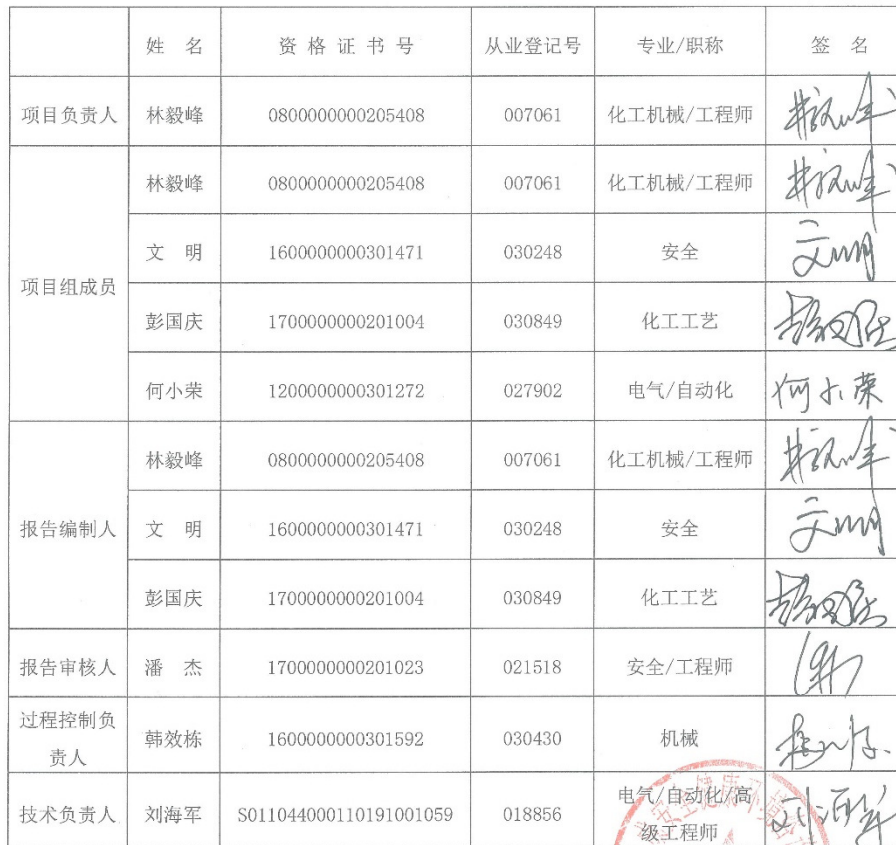 姓 名 资 格 证 书 号 从业登记号 专业/职称 签 名
项目负责人 林毅峰 0800000000205408 007061 化工机械/工程师
项目组成员 林毅峰 0800000000205408 007061 化工机械/工程师
文 明 1600000000301471 030248 安全 文明
彭国庆 1700000000201004 030849 化工工艺
何小荣 1200000000301272 027902 电气/自动化 何小荣
报告编制人 林毅峰 0800000000205408 007061 化工机械/工程师
文 明 1600000000301471 030248 安全 文明
彭国庆 1700000000201004 030849 化工工艺
报告审核人 潘 杰 1700000000201023 021518 安全/工程师
过程控制负
责人 韩效栋 1600000000301592 030430 机械
技术负责人 刘海军 S011044000110191001059 018856 电气/自动化/高
级工程师